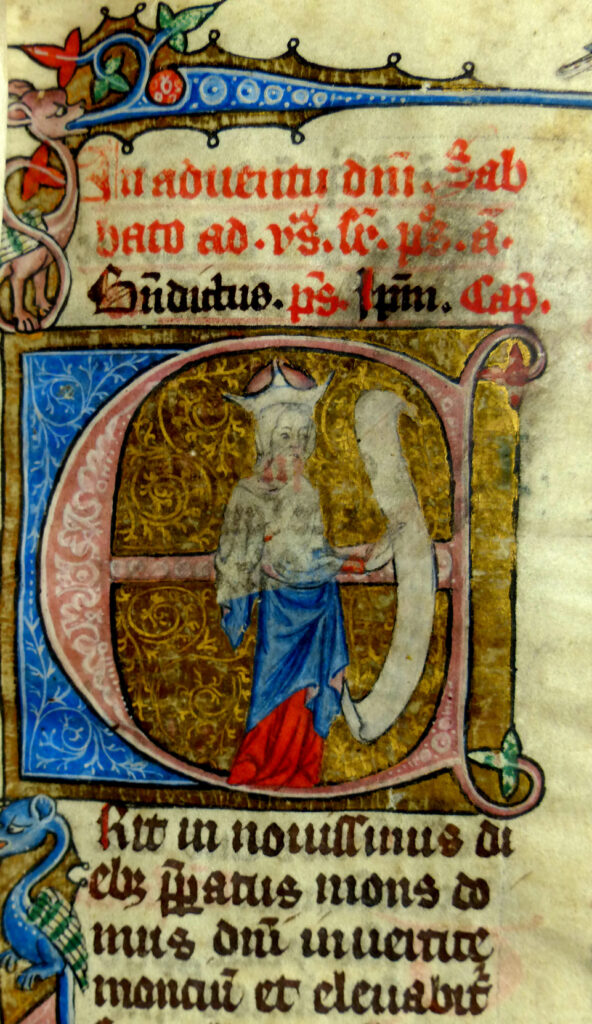 In aduentu dn̄i. Sab
bato ad. vs̄. sc̄. ps̄. a.
Bn̄dictus. ps̄. Ipm̄. Cap̄.
E
Rit in nouissimus di
ebꝫ p̄paratus mons do
mus dn̄i in uertice
monciū et eleuabit᷑